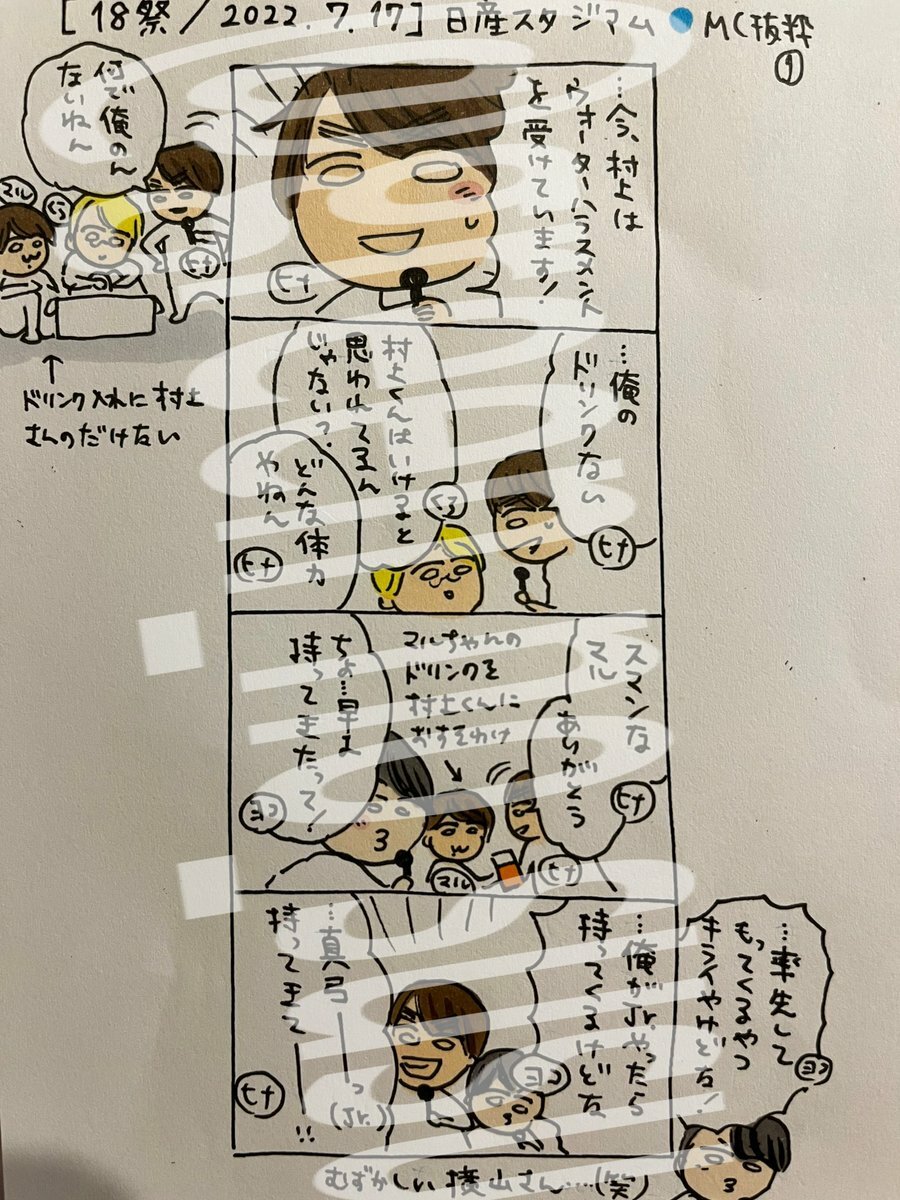 [18祭/2022.7.17] 日産スタジアム MC抜粋
①
何で俺のん
ないねん
マル
くら
ヒナ
↑
ドリンク入れに村上
さんのだけない
…今、村上は
ウォーターハラスメント
を受けています!
ヒナ
…俺の
ドリンクない
ヒナ
村上くんはいけると
思われてるん
じゃないっ?
くら
どんな体力
やねん
ヒナ
スマンな
マル
ありがとう
ヒナ
マルちゃんの
ドリンクを
村上くんに
おすそわけ
マル
ヒナ
ちょ…早よ
持ってきたって!
ヨコ
…俺がJr.やったら
持ってくるけどな
ヨコ
…真弓ーーっ
(Jr.)
持ってきてーーー!!
ヒナ
…率先して
もってくるやつ
キライやけどな!
ヨコ
むずかしい横山さん…(笑)